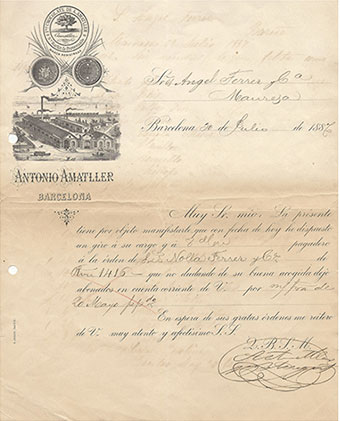 CHOCOLATE DE A. AMATLLER
ANTONIO AMATLLER
BARCELONA
Sres Angel Ferrer y Ca
Manresa
Barcelona 20 de Julio de 1887
Muy Sr. mio: La presente
tiene por objeto manifestarle que con fecha de hoy he dispuesto
un giro á su cargo y á pagadero
á la órden de Nolla Ferrer y Ca de
1416 que no dudando de su buena acogida dejo
abonados en cuenta corriente de V por m/fra de
20 Mayo ppdo
En espera de sus gratas órdenes me reitero
de V muy atento y afectísimo S. S.
Q. B. S. M.